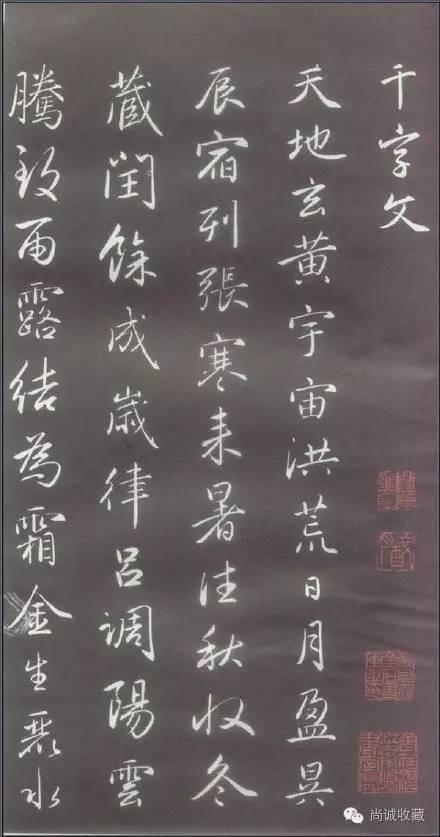 千字文
天地玄黃宇宙洪荒日月盈昃
辰宿列張寒来暑往秋收冬
蔵閏餘成歲律呂調陽雲
騰致雨露結為霜金生麗水
尚诚收藏